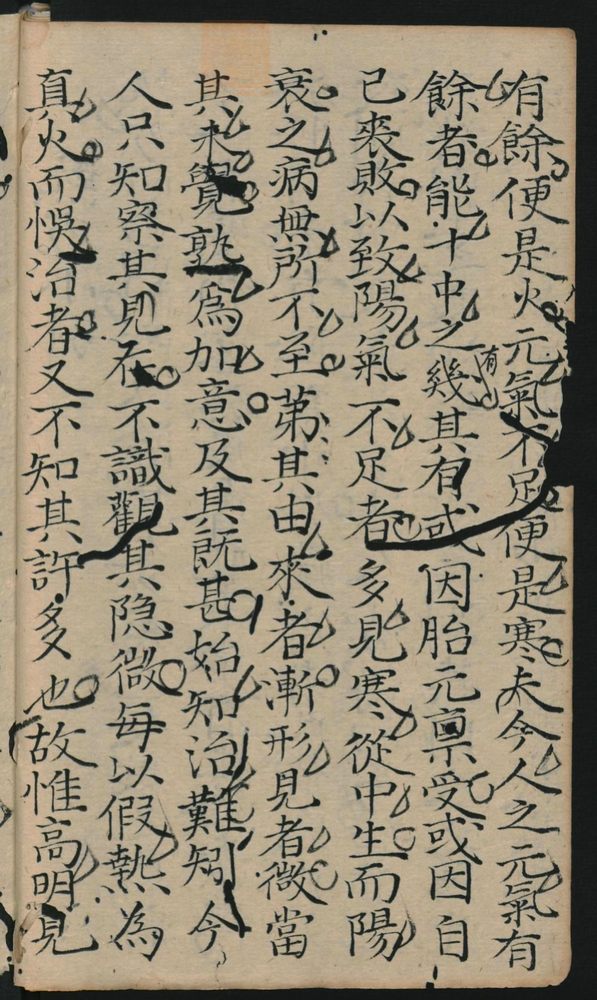 有餘便是火元氣不足便是寒夫今人之元氣有
餘者能十中之幾其有或因胎元稟受或因自
己喪敗以致陽氣不足者多見寒從中生而陽
衰之病無所不至第其由來者漸形見者微當
其未覺孰為加意及其既甚始知治難矧今
人只知察其見在不識觀其隐微每以假熱為
真火而悞治者又不知其許多也故惟高明見
有